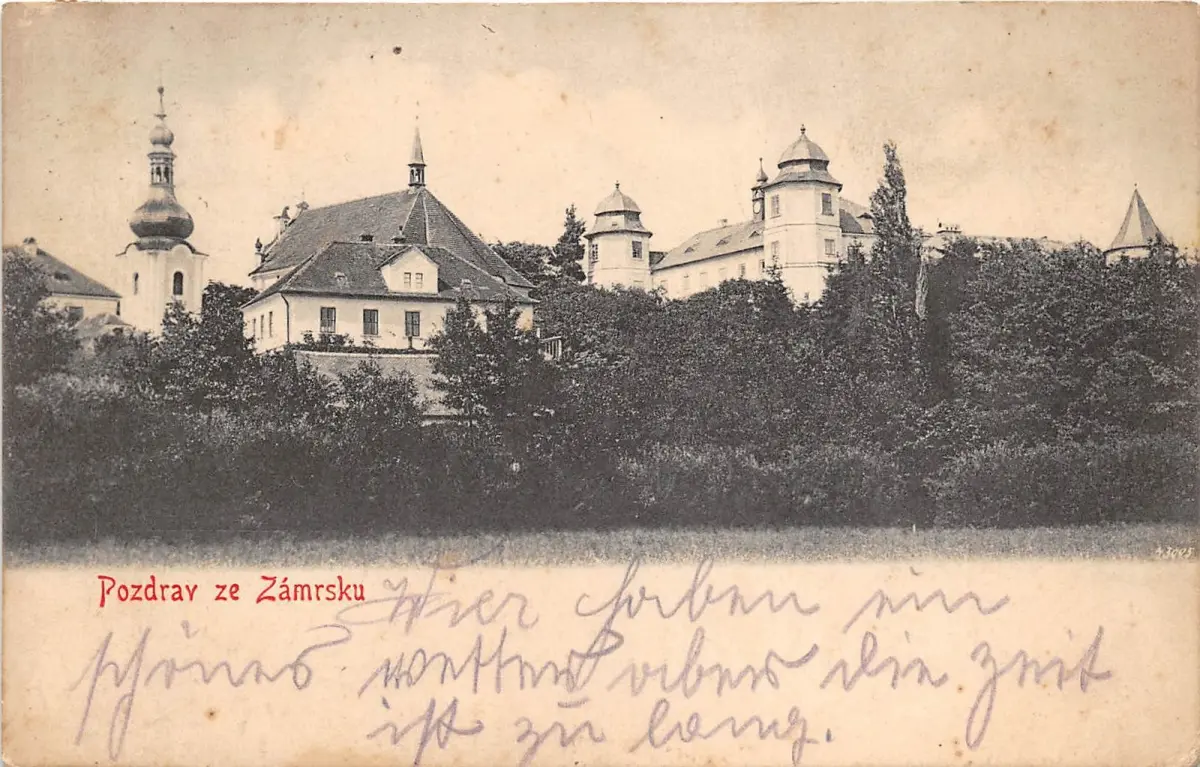 43993
Pozdrav ze Zámrsku
Wier haben ein
schönes wetter aber die zeit
ist zu lang.